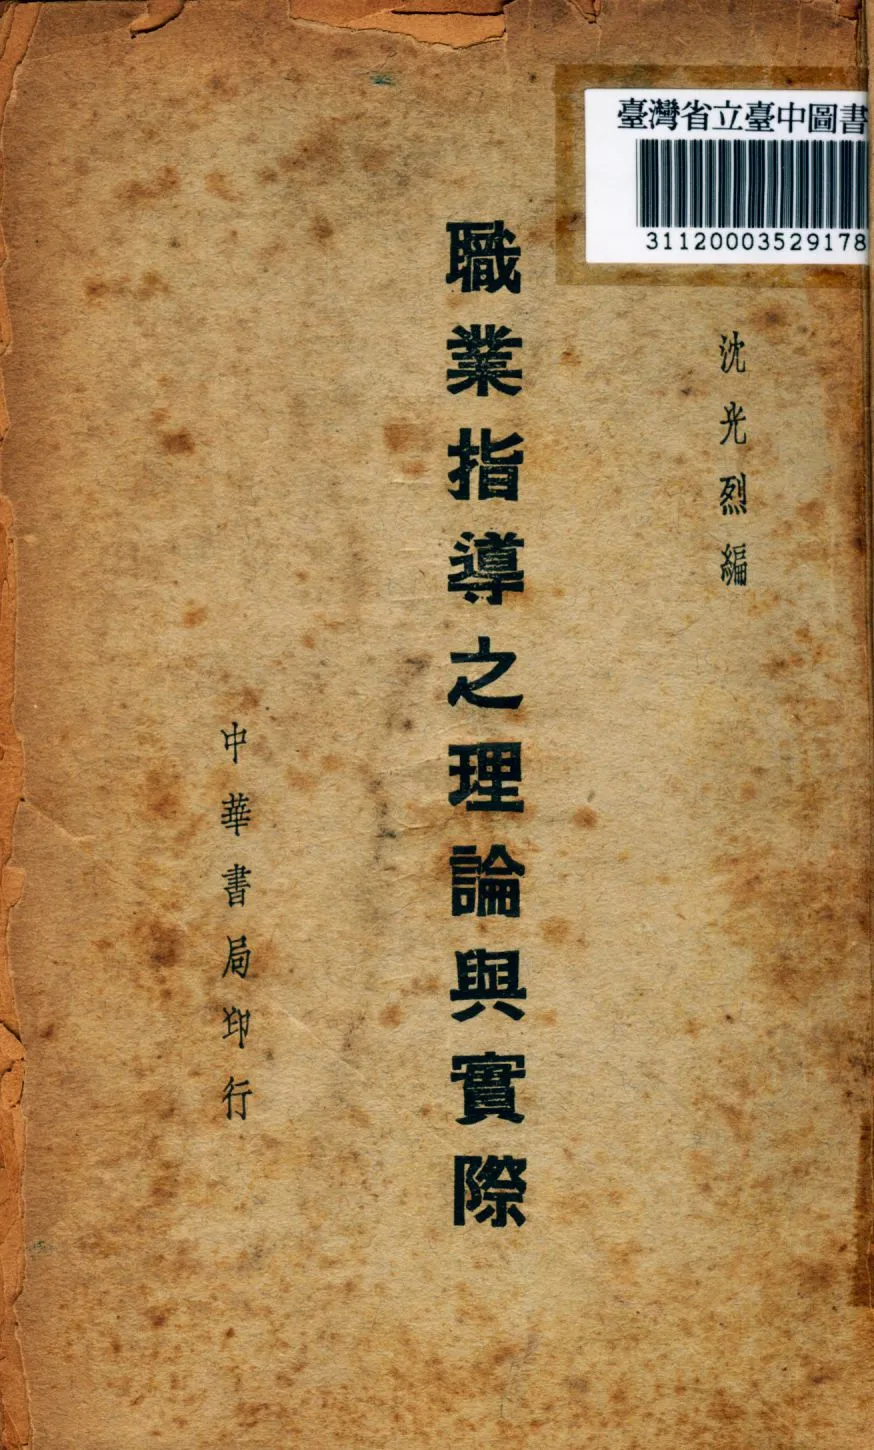 臺灣省立臺中圖書
31120003529178
沈光烈編
職業指導之理論與實際
中華書局印行